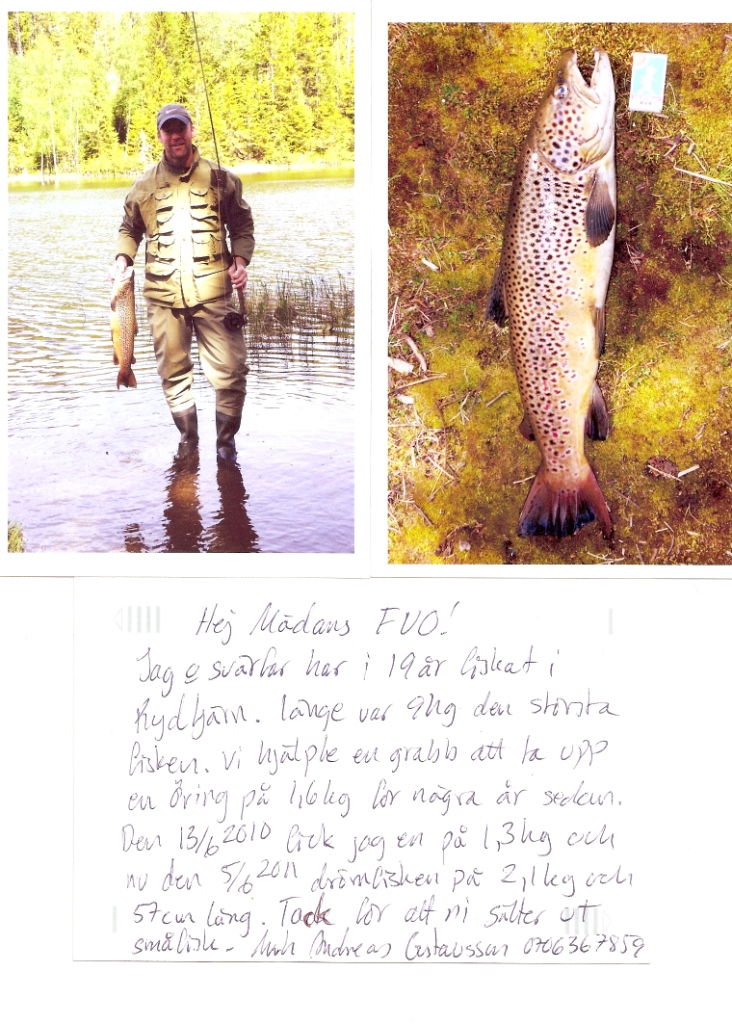 Hej Mådans FVO!
Jag e svärfar har i 19 år fiskat i
Rydtjärn. länge var 9hg den största
fisken. vi hjälpte en grabb att ta upp
en Öring på 1,6kg för några år sedan.
Den 13/6 2010 fick jag en på 1,3kg och
nu den 5/6 2011 drömfisken på 2,1kg och
57cm lång. Tack för att ni sätter ut
småfisk- Mvh Andreas Gustavsson 0706367859